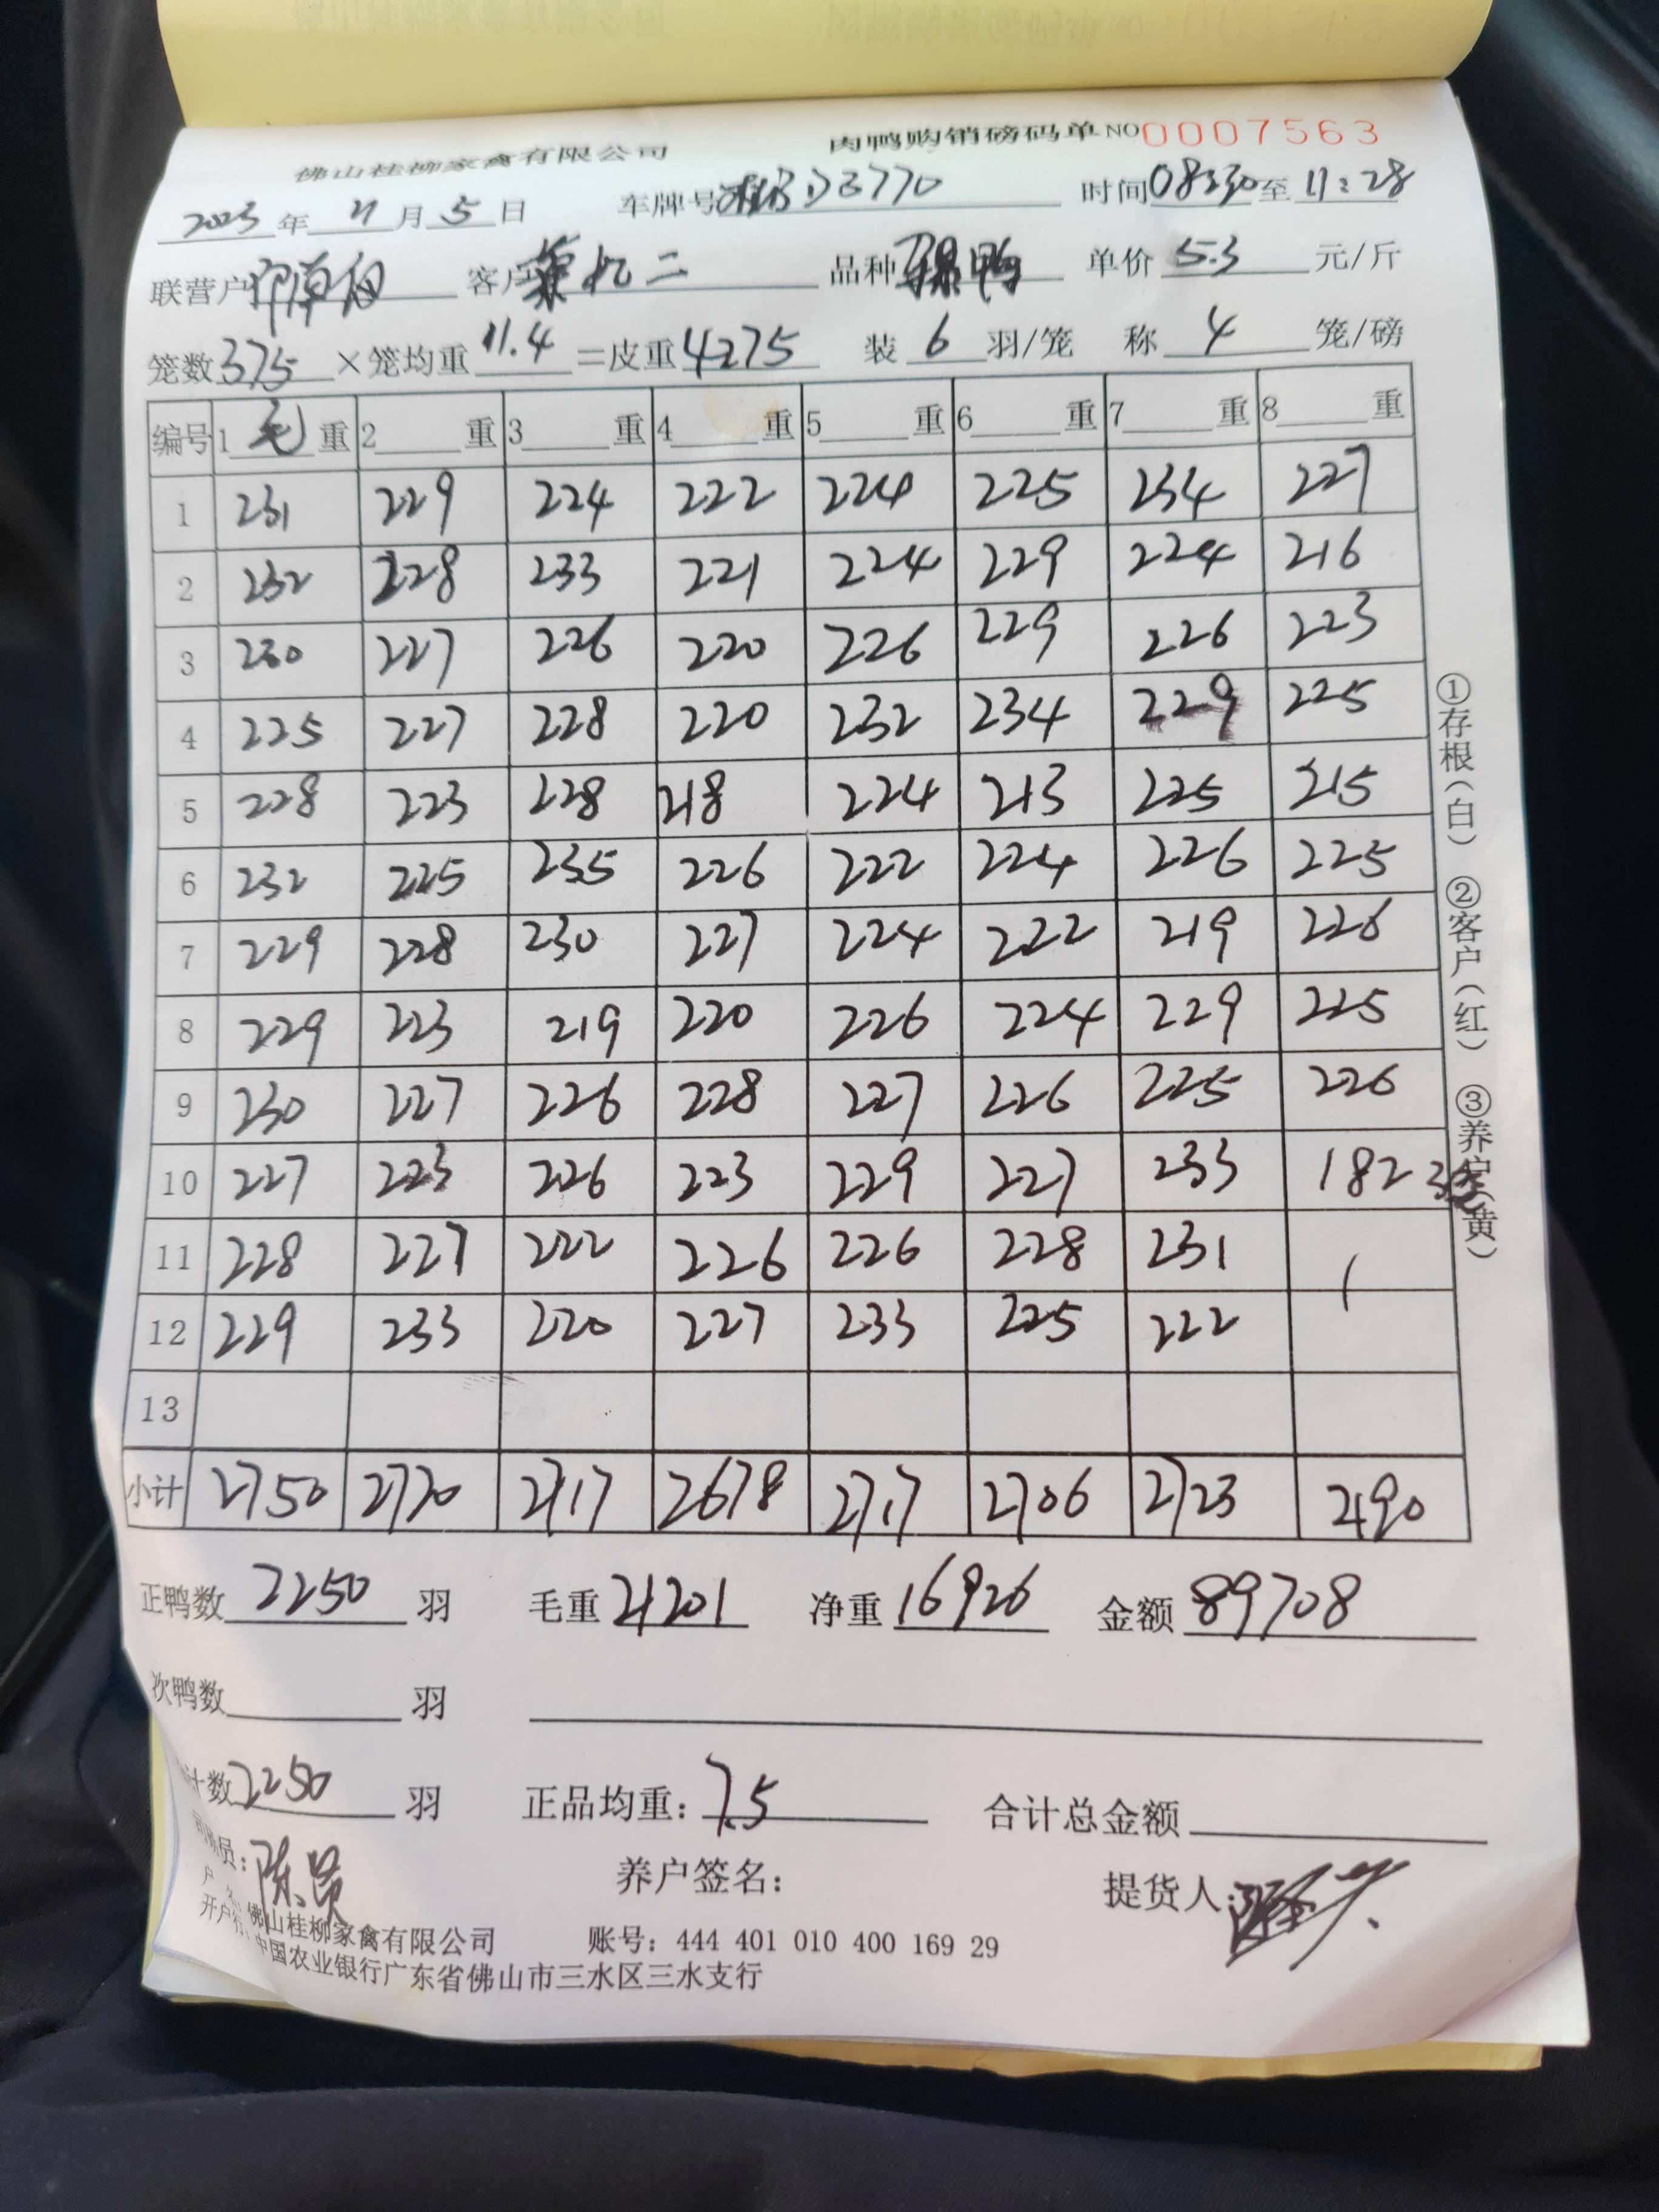 佛山桂柳家禽有限公司 肉鸭购销磅码单 NO 0007563
2023年11月5日 车牌号 D3770 时间08:30至11:28
联营户 客户 二 品种 鸭 单价5.3元/斤
笼数375×笼均重11.4=皮重4275 装6羽/笼 称4笼/磅
编号 1毛重 2重 3重 4重 5重 6重 7重 8重
1 231 229 224 222 224 225 234 227
2 232 228 233 221 224 229 224 216
3 230 227 226 220 226 229 226 223
4 225 227 228 220 232 234 229 225
5 228 223 228 218 224 213 225 215
6 232 225 235 226 222 224 226 225
7 229 228 230 227 224 222 219 226
8 229 223 219 220 226 224 229 225
9 230 227 226 228 227 226 225 226
10 227 223 226 223 229 227 233 182 3笼
11 228 227 222 226 226 228 231
12 229 233 220 227 233 225 222
13
小计 2750 2720 2717 2678 2717 2706 2723 2190
①存根(白) ②客户(红) ③养户(黄)
正鸭数2250羽 毛重21201 净重16926 金额89708
次鸭数 羽
计数2250羽 正品均重:7.5 合计总金额
员:陈 养户签名: 提货人:
户 佛山桂柳家禽有限公司 账号:444 401 010 400 169 29
开户行:中国农业银行广东省佛山市三水区三水支行